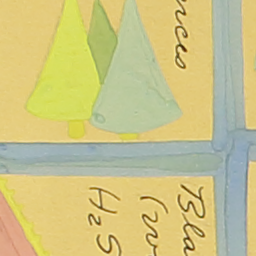 nces
Bla
(w
H2S